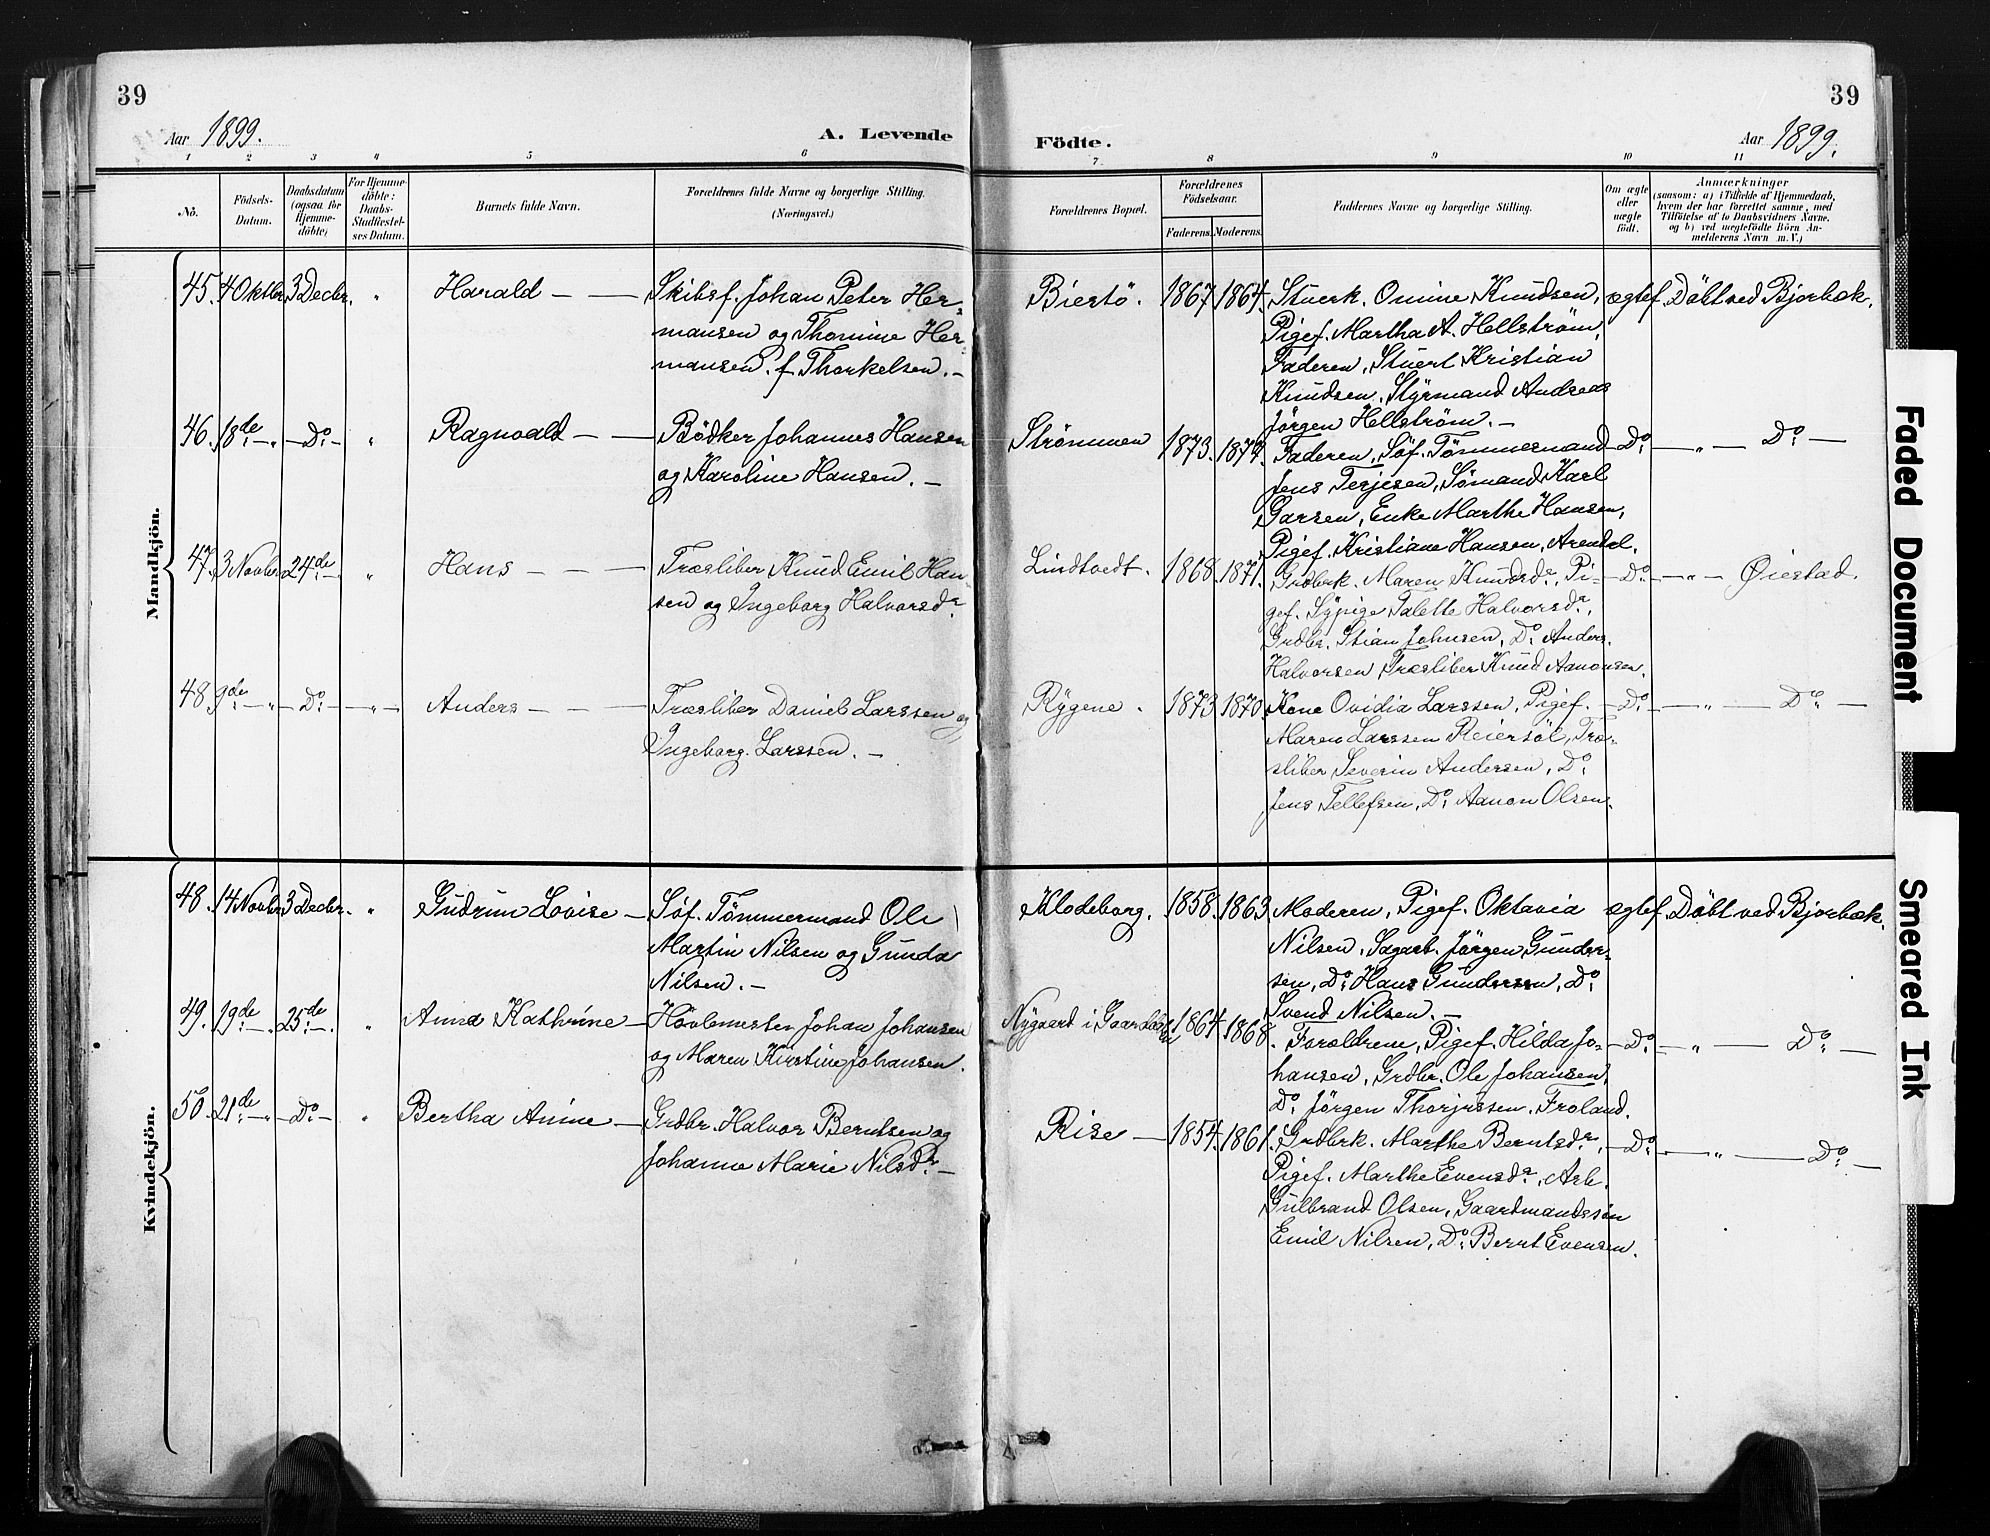 39
39
Aar 1899.
A. Levende
Födte.
Aar 1899.
1 2 3 4 5 6 7 8 9 10 11
No.
Födsels-
Datum.
Daabsdatum
(ogsaa for
Hjemme-
döbte)
For Hjemme-
döbte:
Daabs-
Stadfæstel-
ses Datum.
Barnets fulde Navn.
Forældrenes fulde Navne og borgerlige Stilling.
(Næringsvei.)
Forældrenes Bopæl.
Forældrenes
Födselsaar.
Faderens. Moderens.
Faddernes Navne og borgerlige Stilling.
Om ægte
eller
uægte
født.
Anmærkninger
(saasom: a) i Tilfælde af Hjemmedaab,
hvem der har forrettet samme, med
Tilföielse af to Daabsvidners Navne,
og b) ved uægtefödte Börn An-
melderens Navn m. V.)
Mandkjön.
45. 4 Oktbr. 3 Decbr. " Harald — —
Skibsf. Johan Peter Her-
mansen og Thomine Her-
mansen f. Thorkelsen. —
Biestö. 1867. 1864.
Stuerk. Omine Knudsen,
Pigef. Martha A. Hellström,
Faderen, Stuert Kristian
Knudsen, Styrmand Andreas
Jörgen Hellström. —
ægtef. Döbt ved Bjorbæk.
46. 18de — " — Do — " Ragnvald — —
Bödker Johannes Hansen
og Karoline Hansen. —
Strömmen 1873. 1874.
Faderen, Söf. Tömmermand
Jens Terjesen, Sömand Karl
Garsen, Enke Marthe Hansen,
Pigef. Kristiane Hansen, Arendal.
Do — " — Do —
47. 3 Novbr. 24de —. " Hans — — —
Træsliber Knud Emil Han-
sen og Ingeborg Halvorsdr.
Lindtvedt. 1868. 1871.
Grdbrk. Maren Knudsdr, Pi-
gef. Sypige Talette Halvorsdr,
Grdbr. Stian Johnsen, Do Anders
Halvorsen, Træsliber Knud Aanonsen.
— Do — " — Øiestad.
48. 9de — " — Do — " — Anders — — —
Træsliber Daniel Larssen og
Ingeborg Larssen. —
Rygene. 1873. 1870.
Kone Ovidia Larssen, Pigef.
Maren Larssen Reiersöl, Træ-
sliber Severin Andersen, Do
Jens Tellefsen, Do Aanon Olsen.
— Do — " — Do —
Kvindekjön.
48. 14 Novbr. 3 Decbr. " Gudrun Lovise —
Söf. Tömmermand Ole
Martin Nilsen og Gunda
Nilsen. —
Klodeborg. 1858. 1863.
Moderen, Pigef. Oktavia
Nilsen, Sagarb. Jörgen Gunder-
sen, Do Hans Gundersen, Do
Svend Nilsen. —
ægtef. Döbt ved Bjorbæk.
49. 19de — " 25de —. " Anna Kathrine —
Hövlemester Johan Johansen
og Maren Kirstine Johansen.
Nygaard i 1864. 1868.
Forældrene, Pigef. Hilda Jo-
hansen, Grdbr. Ole Johansen,
Do Jörgen Thorjussen, Froland.
— Do — " — Do —
50. 21de — " — Do — " Bertha Anine —
Grdbr. Halvor Berntsen og
Johanne Marie Nilsdr —
Rise — 1854. 1861.
Grdbrk. Marthe Berntsdr,
Pigef. Marthe Evensdr, Arb.
Gulbrand Olsen, Gaardmandssön
Emil Nilsen, Do Bernt Evensen.
— Do — " — Do —
Faded Document
Smeared Ink